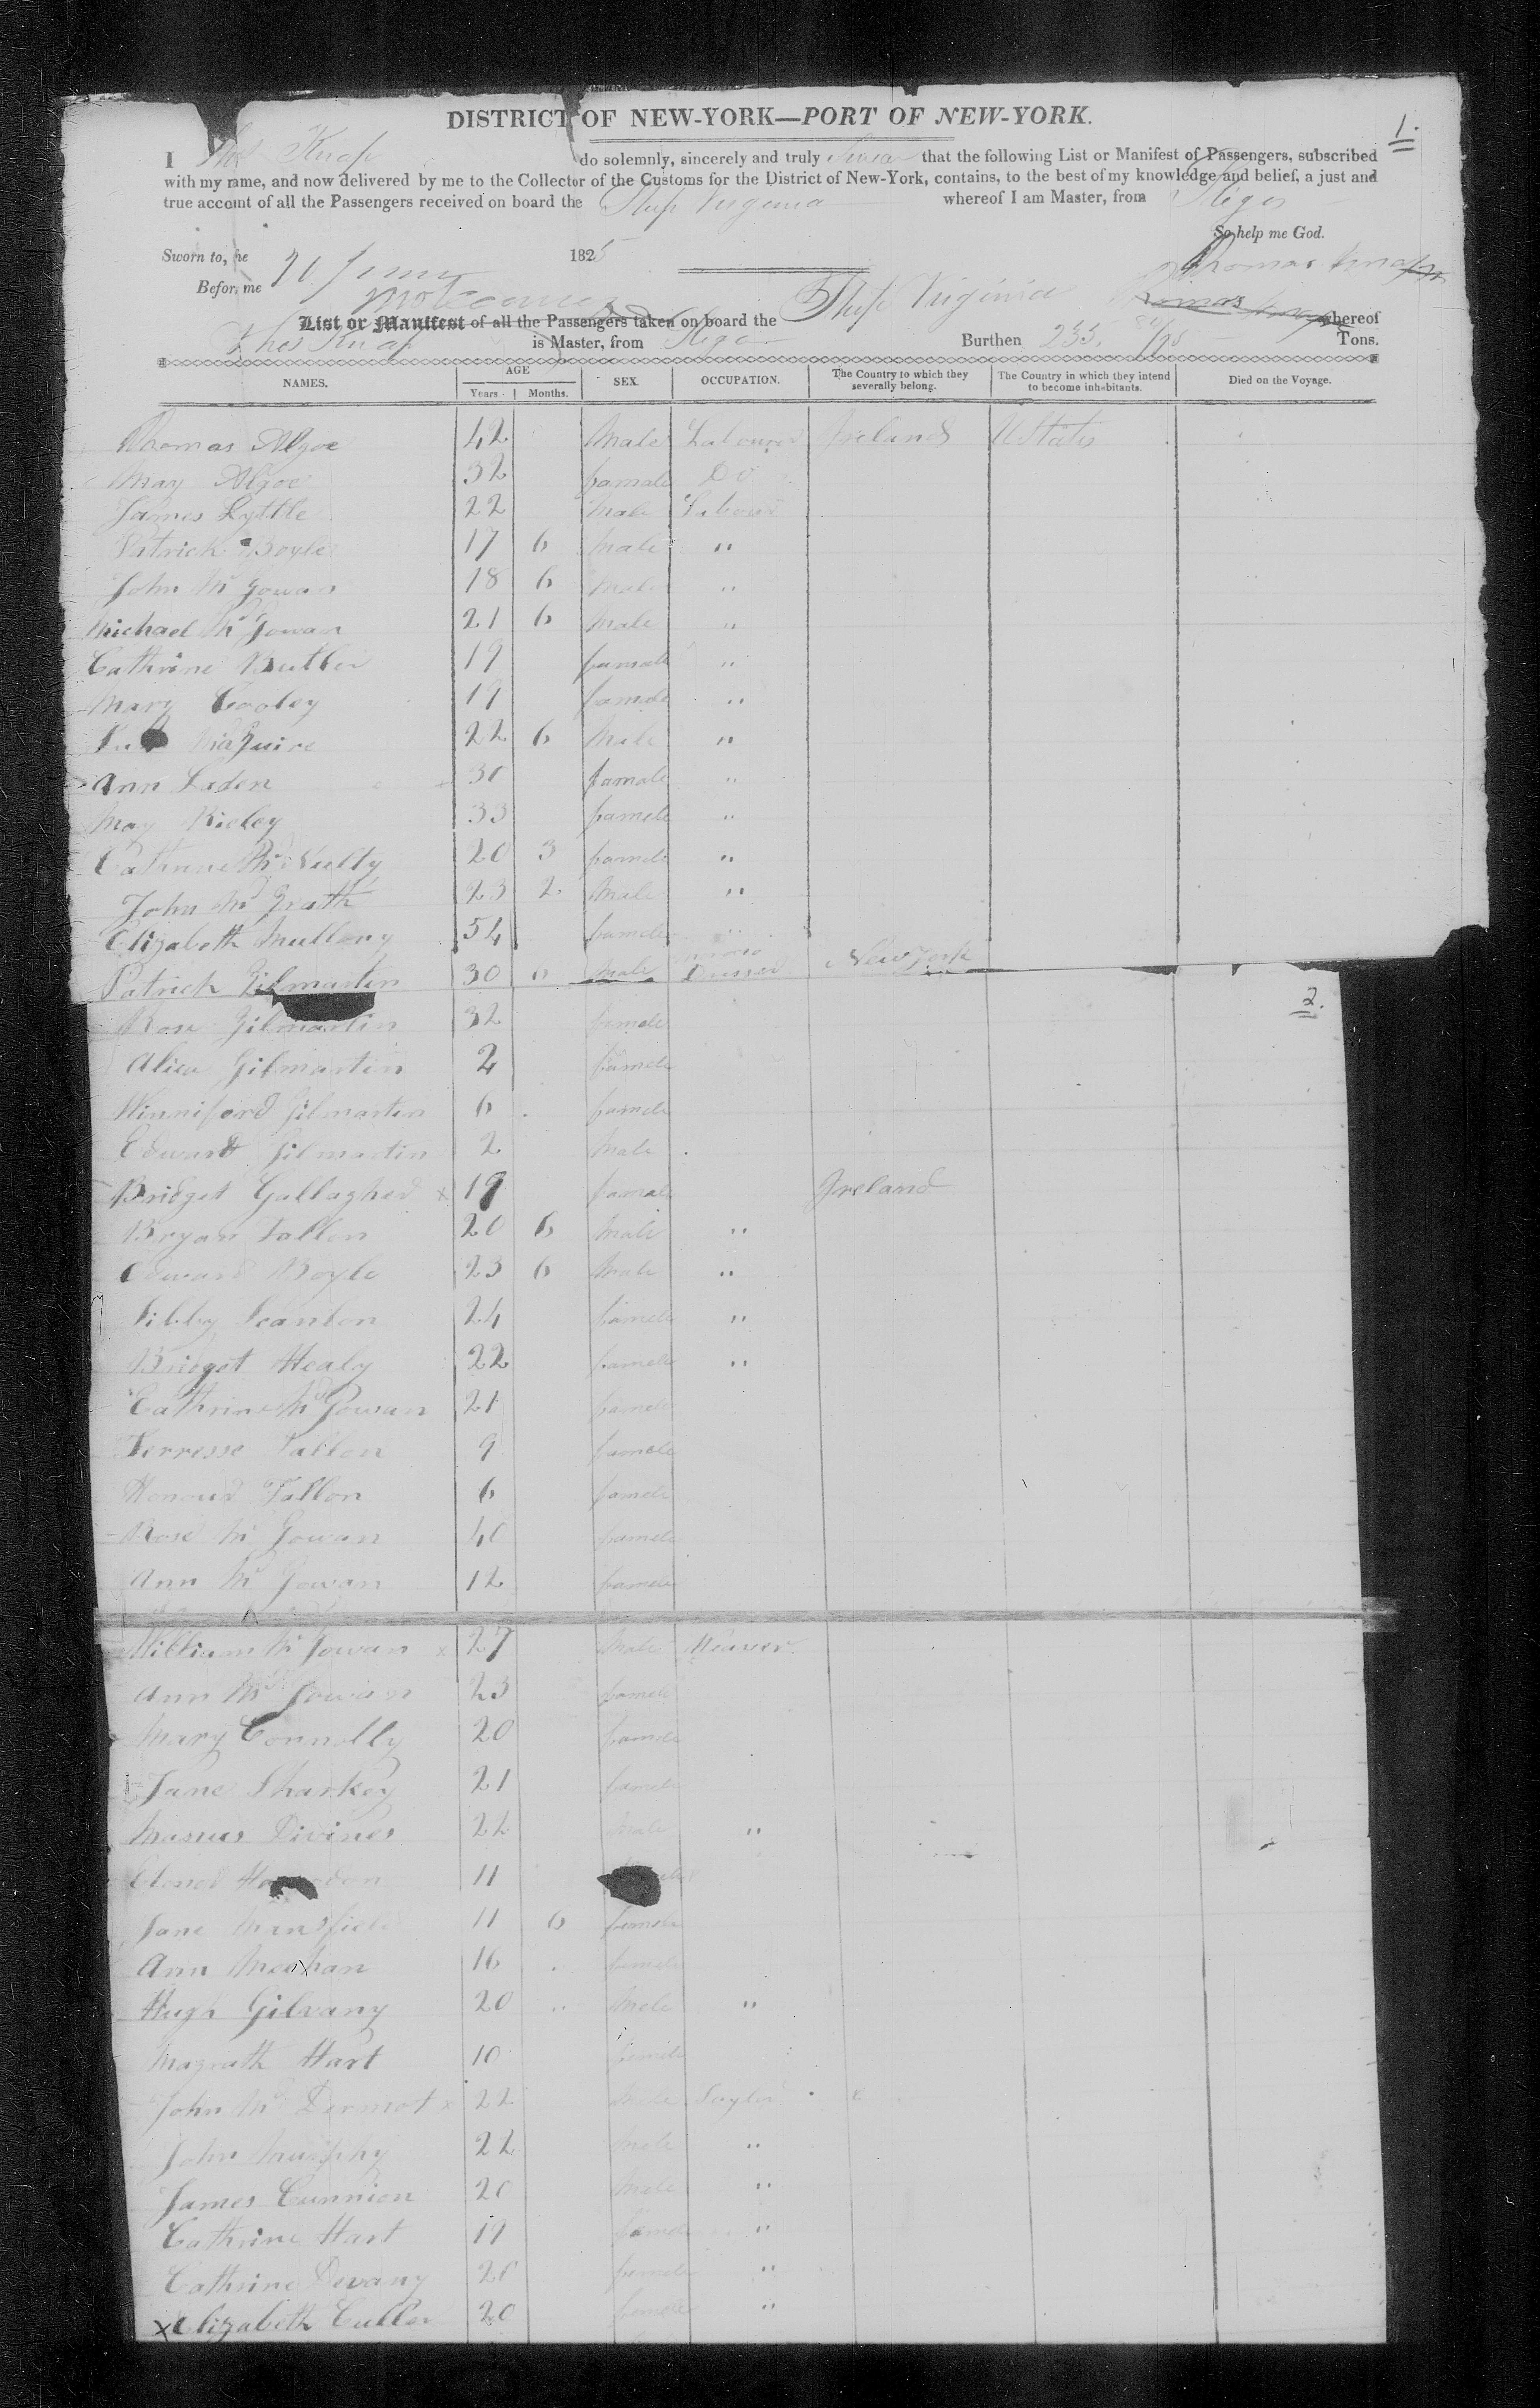 1.
DISTRICT OF NEW-YORK—PORT OF NEW-YORK.
I Thos Knap do solemnly, sincerely and truly Swear that the following List or Manifest of Passengers, subscribed
with my name, and now delivered by me to the Collector of the Customs for the District of New-York, contains, to the best of my knowledge and belief, a just and
true account of all the Passengers received on board the Ship Virginia whereof I am Master, from Sligo
So help me God.
Sworn to, he 20 June 1825 Thomas Knapp
Before me
List or Manifest of all the Passengers taken on board the Ship Virginia whereof
Thos Knap is Master, from Sligo Burthen 233. Tons.
NAMES. AGE SEX. OCCUPATION. The Country to which they severally belong. The Country in which they intend to become inhabitants. Died on the Voyage.
Years. Months.
Thomas Algoe 42 Male Labourer Ireland U States
May Algoe 32 famale Do
James Lyttle 22 Male Labour
Patrick Boyle 17 6 Male "
John Mc Gowan 18 6 male "
Michael Mc Gowan 21 6 Male "
Cathrine Butler 19 famale "
Mary Cooley 19 famale "
Maguire 22 6 Male "
Ann Laden 30 famale "
May Rieley 33 famele "
Cathrine Mc Nulty 20 3 famele "
John Mc Grath 23 2 Male "
Elizabeth Mullony 54 famele "
Patrick Gilmartin 30 6 Male Dresser New York
2.
Rose Gilmartin 32 famele
Alice Gilmartin 2 famele
Winniford Gilmartin 6 famele
Edward Gilmartin 2 Male
Bridget Gallagher x 19 famale Ireland
Bryan Fallon 20 6 Male "
Edward Boyle 23 6 Male "
Sibby Scanlon 24 famele "
Bridget Healy 22 famele "
Cathrine Mc Gowan 21 famele
Terresse Fallon 9 famele
Honour Fallon 6 famele
Rose Mc Gowan 40 famele
Ann Mc Gowan 12 famele
William Mc Gowan x 27 Male Weaver
Ann Mc Gowan 23 famele
Mary Connolly 20 famele
Jane Sharkey 21 famele
Divines 22 Male "
11
Jane Mansfield 11 6 famele
Ann Meehan 16 famele
Hugh Gilvany 20 Male "
Magrath Hart 10 famele
John Mc Dermot x 22 Male Taylor
John Murphy 22 Male "
James Cunnion 20 Male "
Cathrine Hart 19 famele "
Cathrine Devany 20 famele "
x Elizabeth Cullen 20 famele "